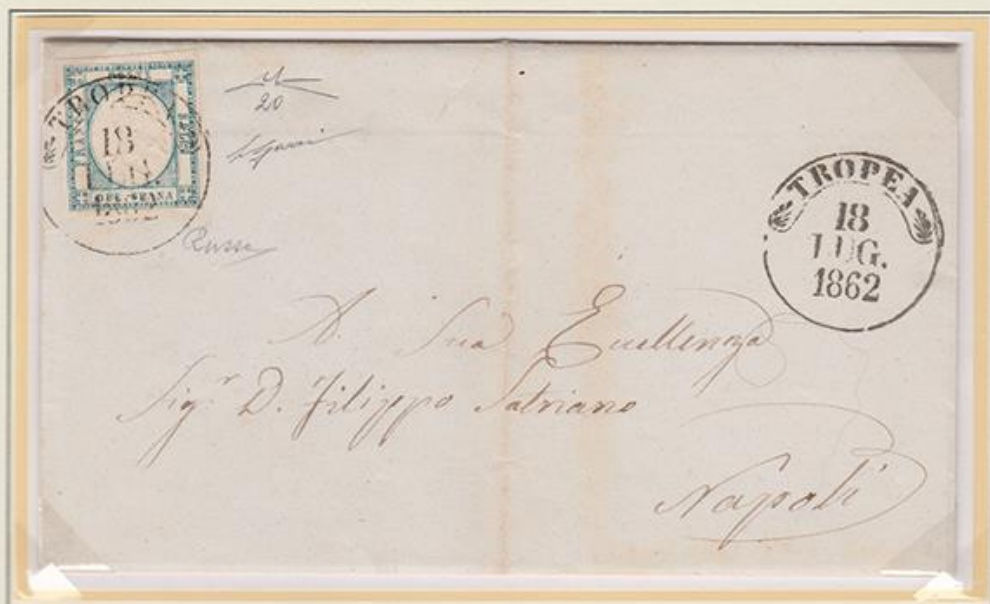 TROPEA
18
LUG.
1862
DUE GRANA
20
TROPEA
18
LUG.
1862
A Sua Eccellenza
Sigr. D. Filippo Satriano
Napoli